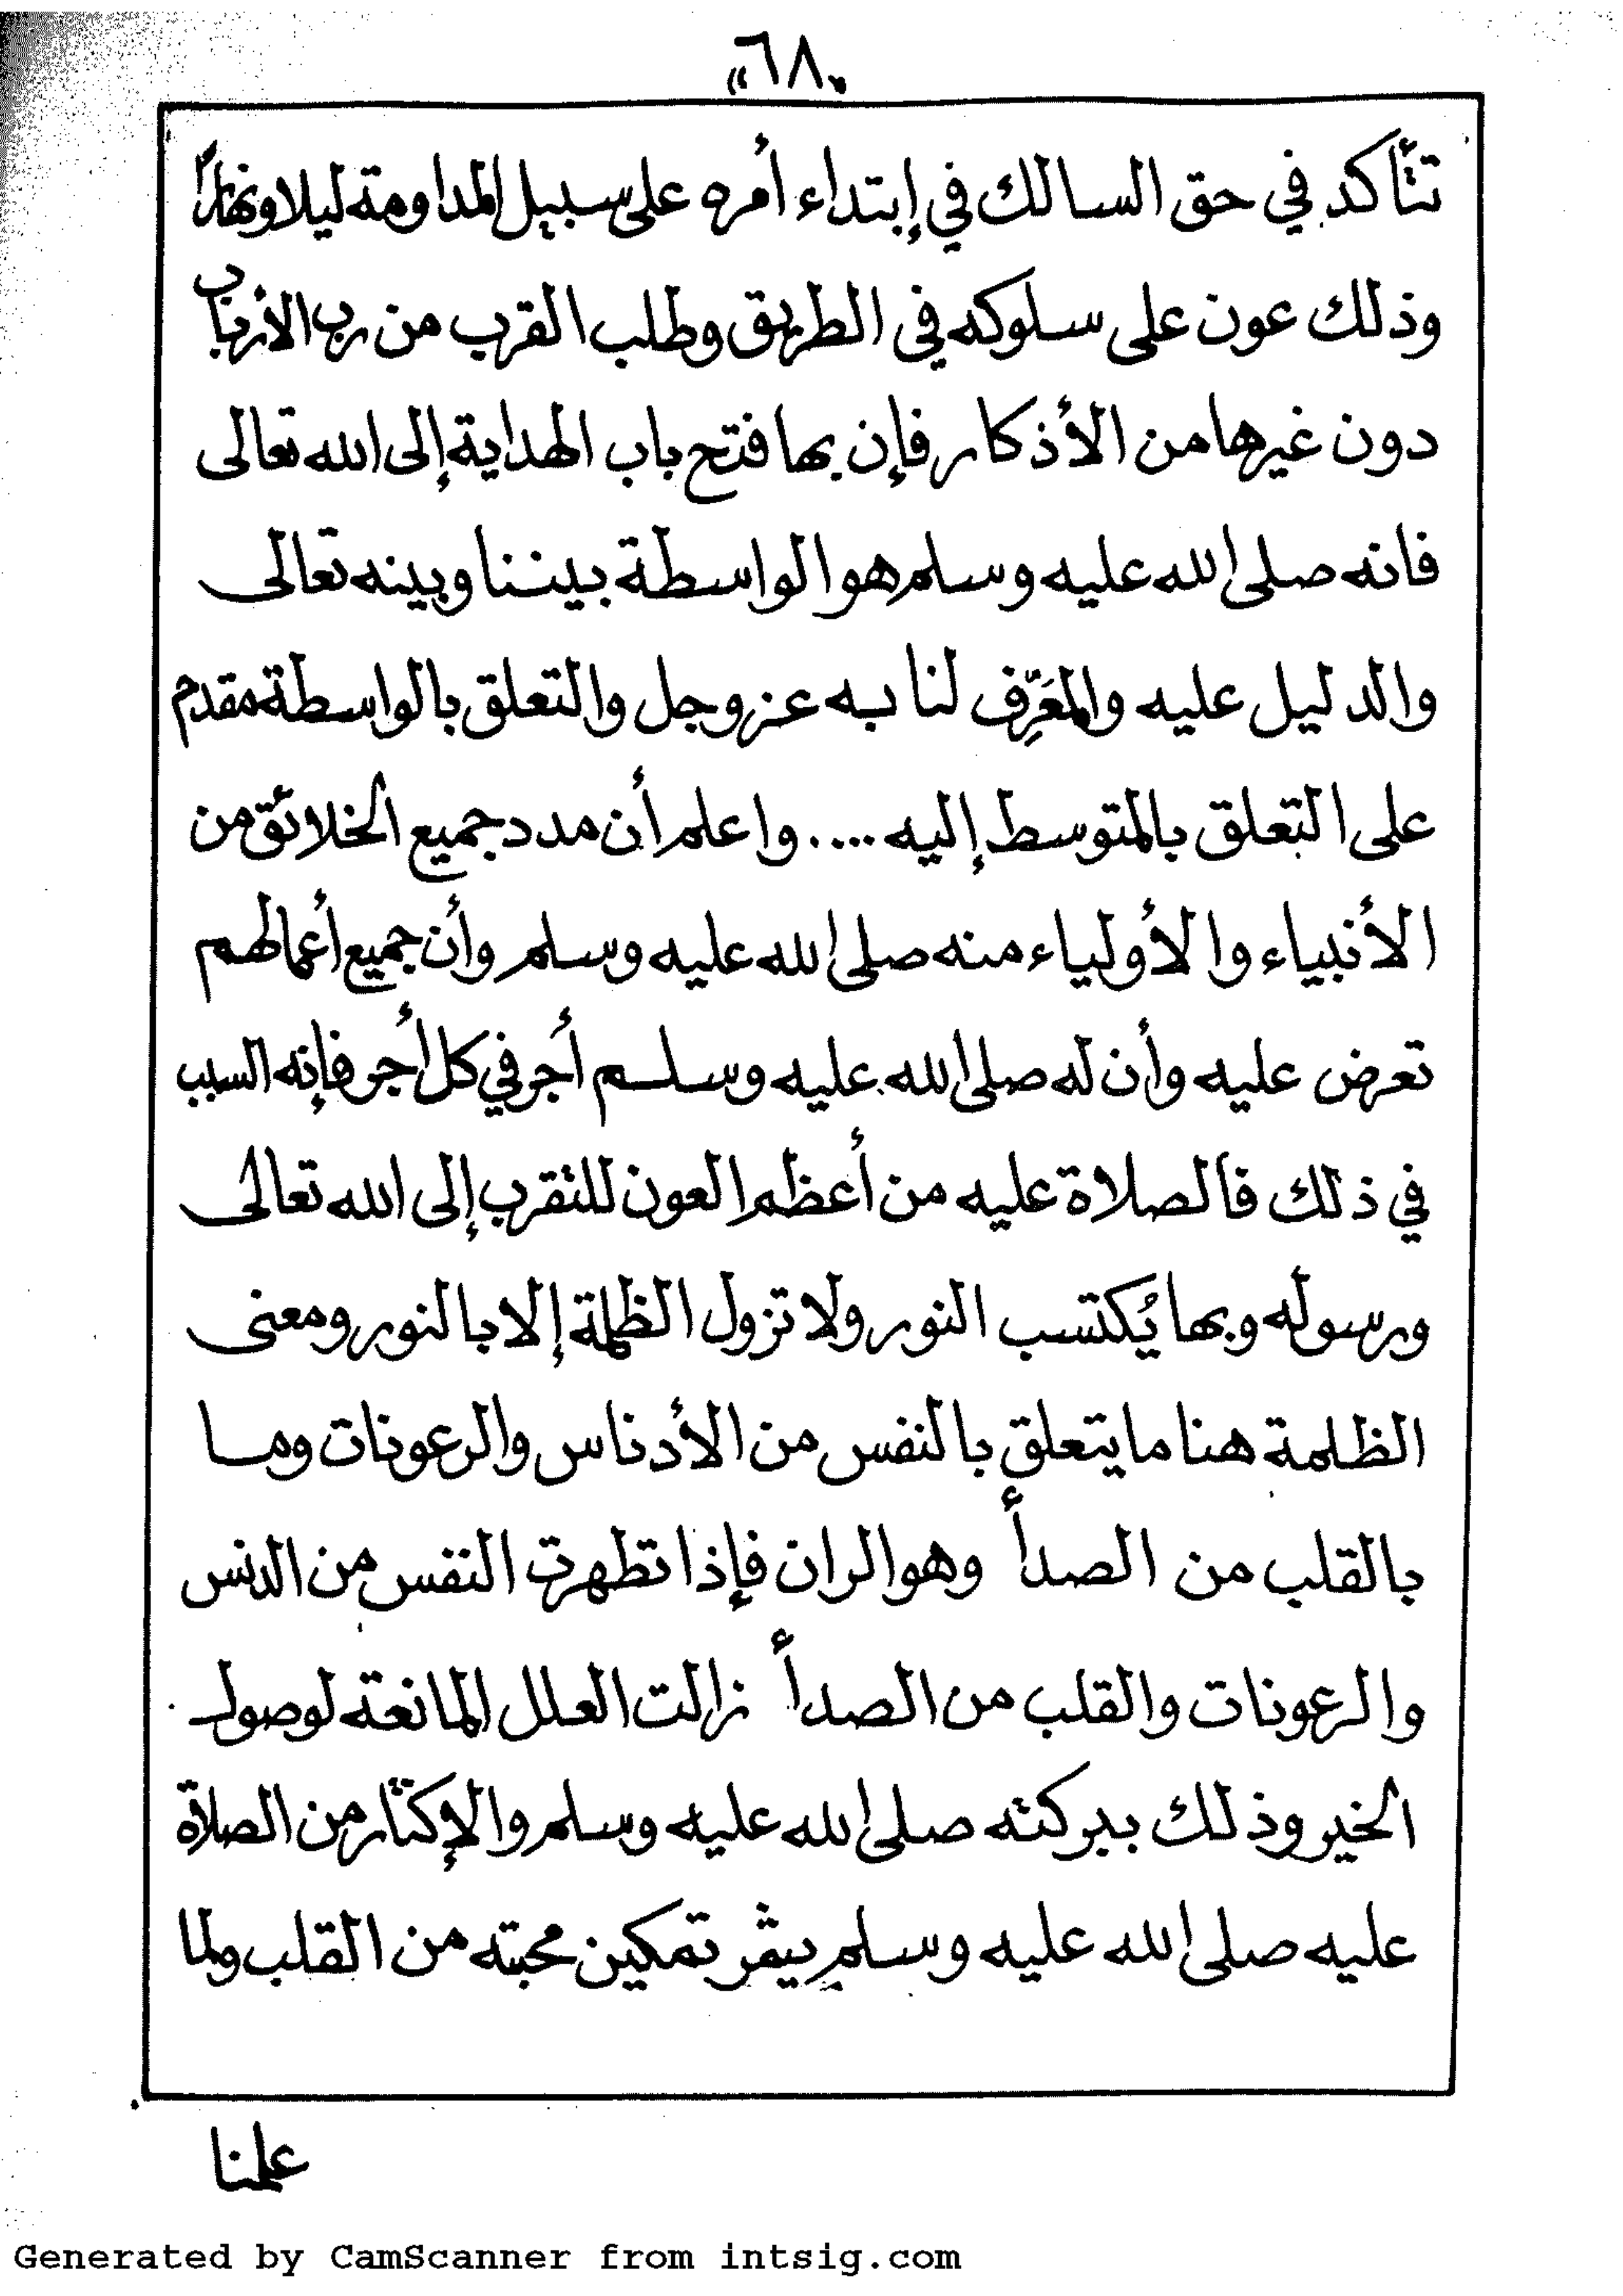 «٦٨»
تتأكد في حق السالك في إبتداء أمره على سبيل المداومة ليلا ونهارًا
وذلك عون على سلوكه في الطريق وطلب القرب من رب الأرباب
دون غيرها من الأذكار فإن بها فتح باب الهداية إلى الله تعالى
فانه صلى الله عليه وسلم هو الواسطة بيننا وبينه تعالى
والدليل عليه والمعَرِّف لنا به عز وجل والتعلق بالواسطة مقدم
على التعلق بالمتوسط إليه .... واعلم أن مدد جميع الخلائق من
الأنبياء والأولياء منه صلى الله عليه وسلم وأن جميع أعمالهم
تعرض عليه وأن له صلى الله عليه وسلم أجر في كل أجر فإنه السبب
في ذلك فالصلاة عليه من أعظم العون للتقرب إلى الله تعالى
ورسوله وبها يُكتسب النور ولا تزول الظلمة إلا بالنور ومعنى
الظلمة هنا ما يتعلق بالنفس من الأدناس والرعونات وما
بالقلب من الصدأ وهو الران فإذا تطهرت النفس من الدنس
والرعونات والقلب من الصدأ زالت العلل المانعة لوصول
الخير وذلك ببركته صلى الله عليه وسلم والإكثار من الصلاة
عليه صلى الله عليه وسلم يثمر تمكين محبته من القلب ولما
علمنا
Generated by CamScanner from intsig.com